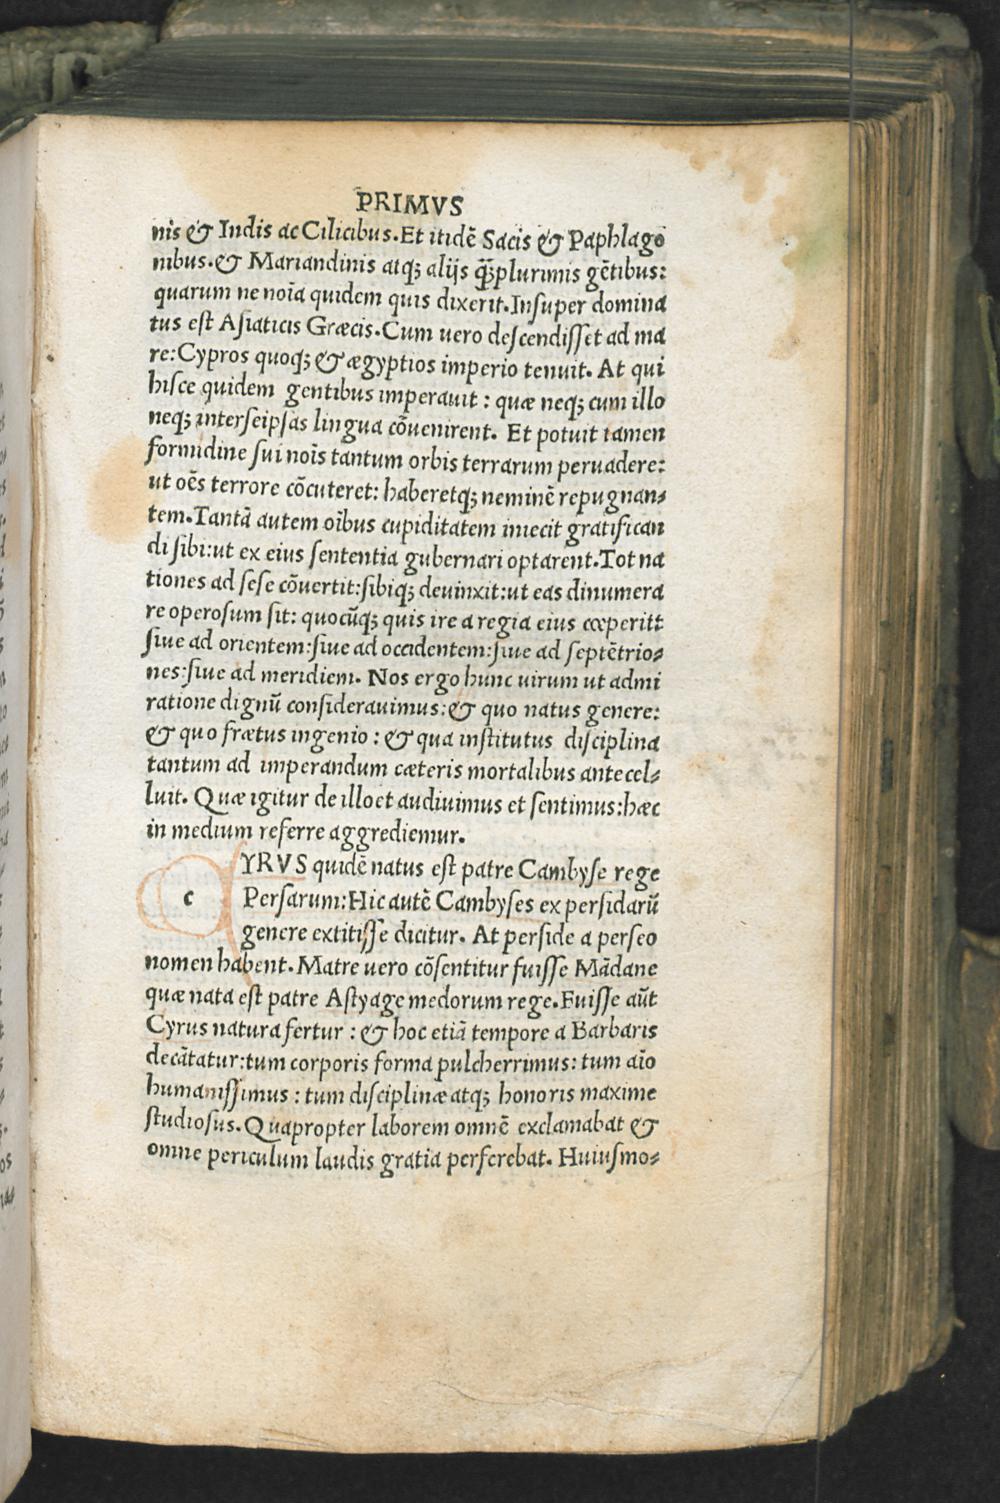 PRIMVS
nis & Indis ac Cilicibus. Et itidē Sacis & Paphlago
nibus. & Mariandinis atq; alijs q̄ꝫplurimis gētibus:
quarum ne noīa quidem quis dixerit. Inſuper domina
tus eſt Aſiaticis Græcis. Cum uero deſcendiſſet ad ma
re: Cypros quoq; & ægyptios imperio tenuit. At qui
hiſce quidem gentibus imperauit: quæ neq; cum illo
neq; interſeipſas lingua cōuenirent. Et potuit tamen
formidine ſui noīs tantum orbis terrarum peruadere:
ut oēs terrore cōcuteret: haberetq; neminē repugnan⸗
tem. Tantā autem oībus cupiditatem iniecit gratifican
di ſibi: ut ex eius ſententia gubernari optarent. Tot na
tiones ad ſeſe cōuertit: ſibiq; deuinxit: ut eas dinumera
re operoſum ſit: quocūq; quis ire a regia eius cœperitt
ſiue ad orientem: ſiue ad occidentem: ſiue ad ſeptētrio⸗
nes: ſiue ad meridiem. Nos ergo hunc uirum ut admi
ratione dignū conſiderauimus: & quo natus genere:
& quo frætus ingenio: & qua inſtitutus diſciplina
tantum ad imperandum cæteris mortalibus antecel⸗
luit. Quæ igitur de illo et audiuimus et ſentimus: hæc
in medium referre aggrediemur.
c YRVS quidē natus eſt patre Cambyſe rege
Perſarum: Hic autē Cambyſes ex perſidarū
genere extitiſſe dicitur. At perſide a perſeo
nomen habent. Matre uero cōſentitur fuiſſe Mādane
quæ nata eſt patre Aſtyage medorum rege. Fuiſſe aūt
Cyrus natura fertur: & hoc etiā tempore a Barbaris
decātatur: tum corporis forma pulcherrimus: tum aīo
humaniſſimus: tum diſciplinæ atq; honoris maxime
ſtudioſus. Quapropter laborem omnē exclamabat &
omne periculum laudis gratia perferebat. Huiuſmo⸗